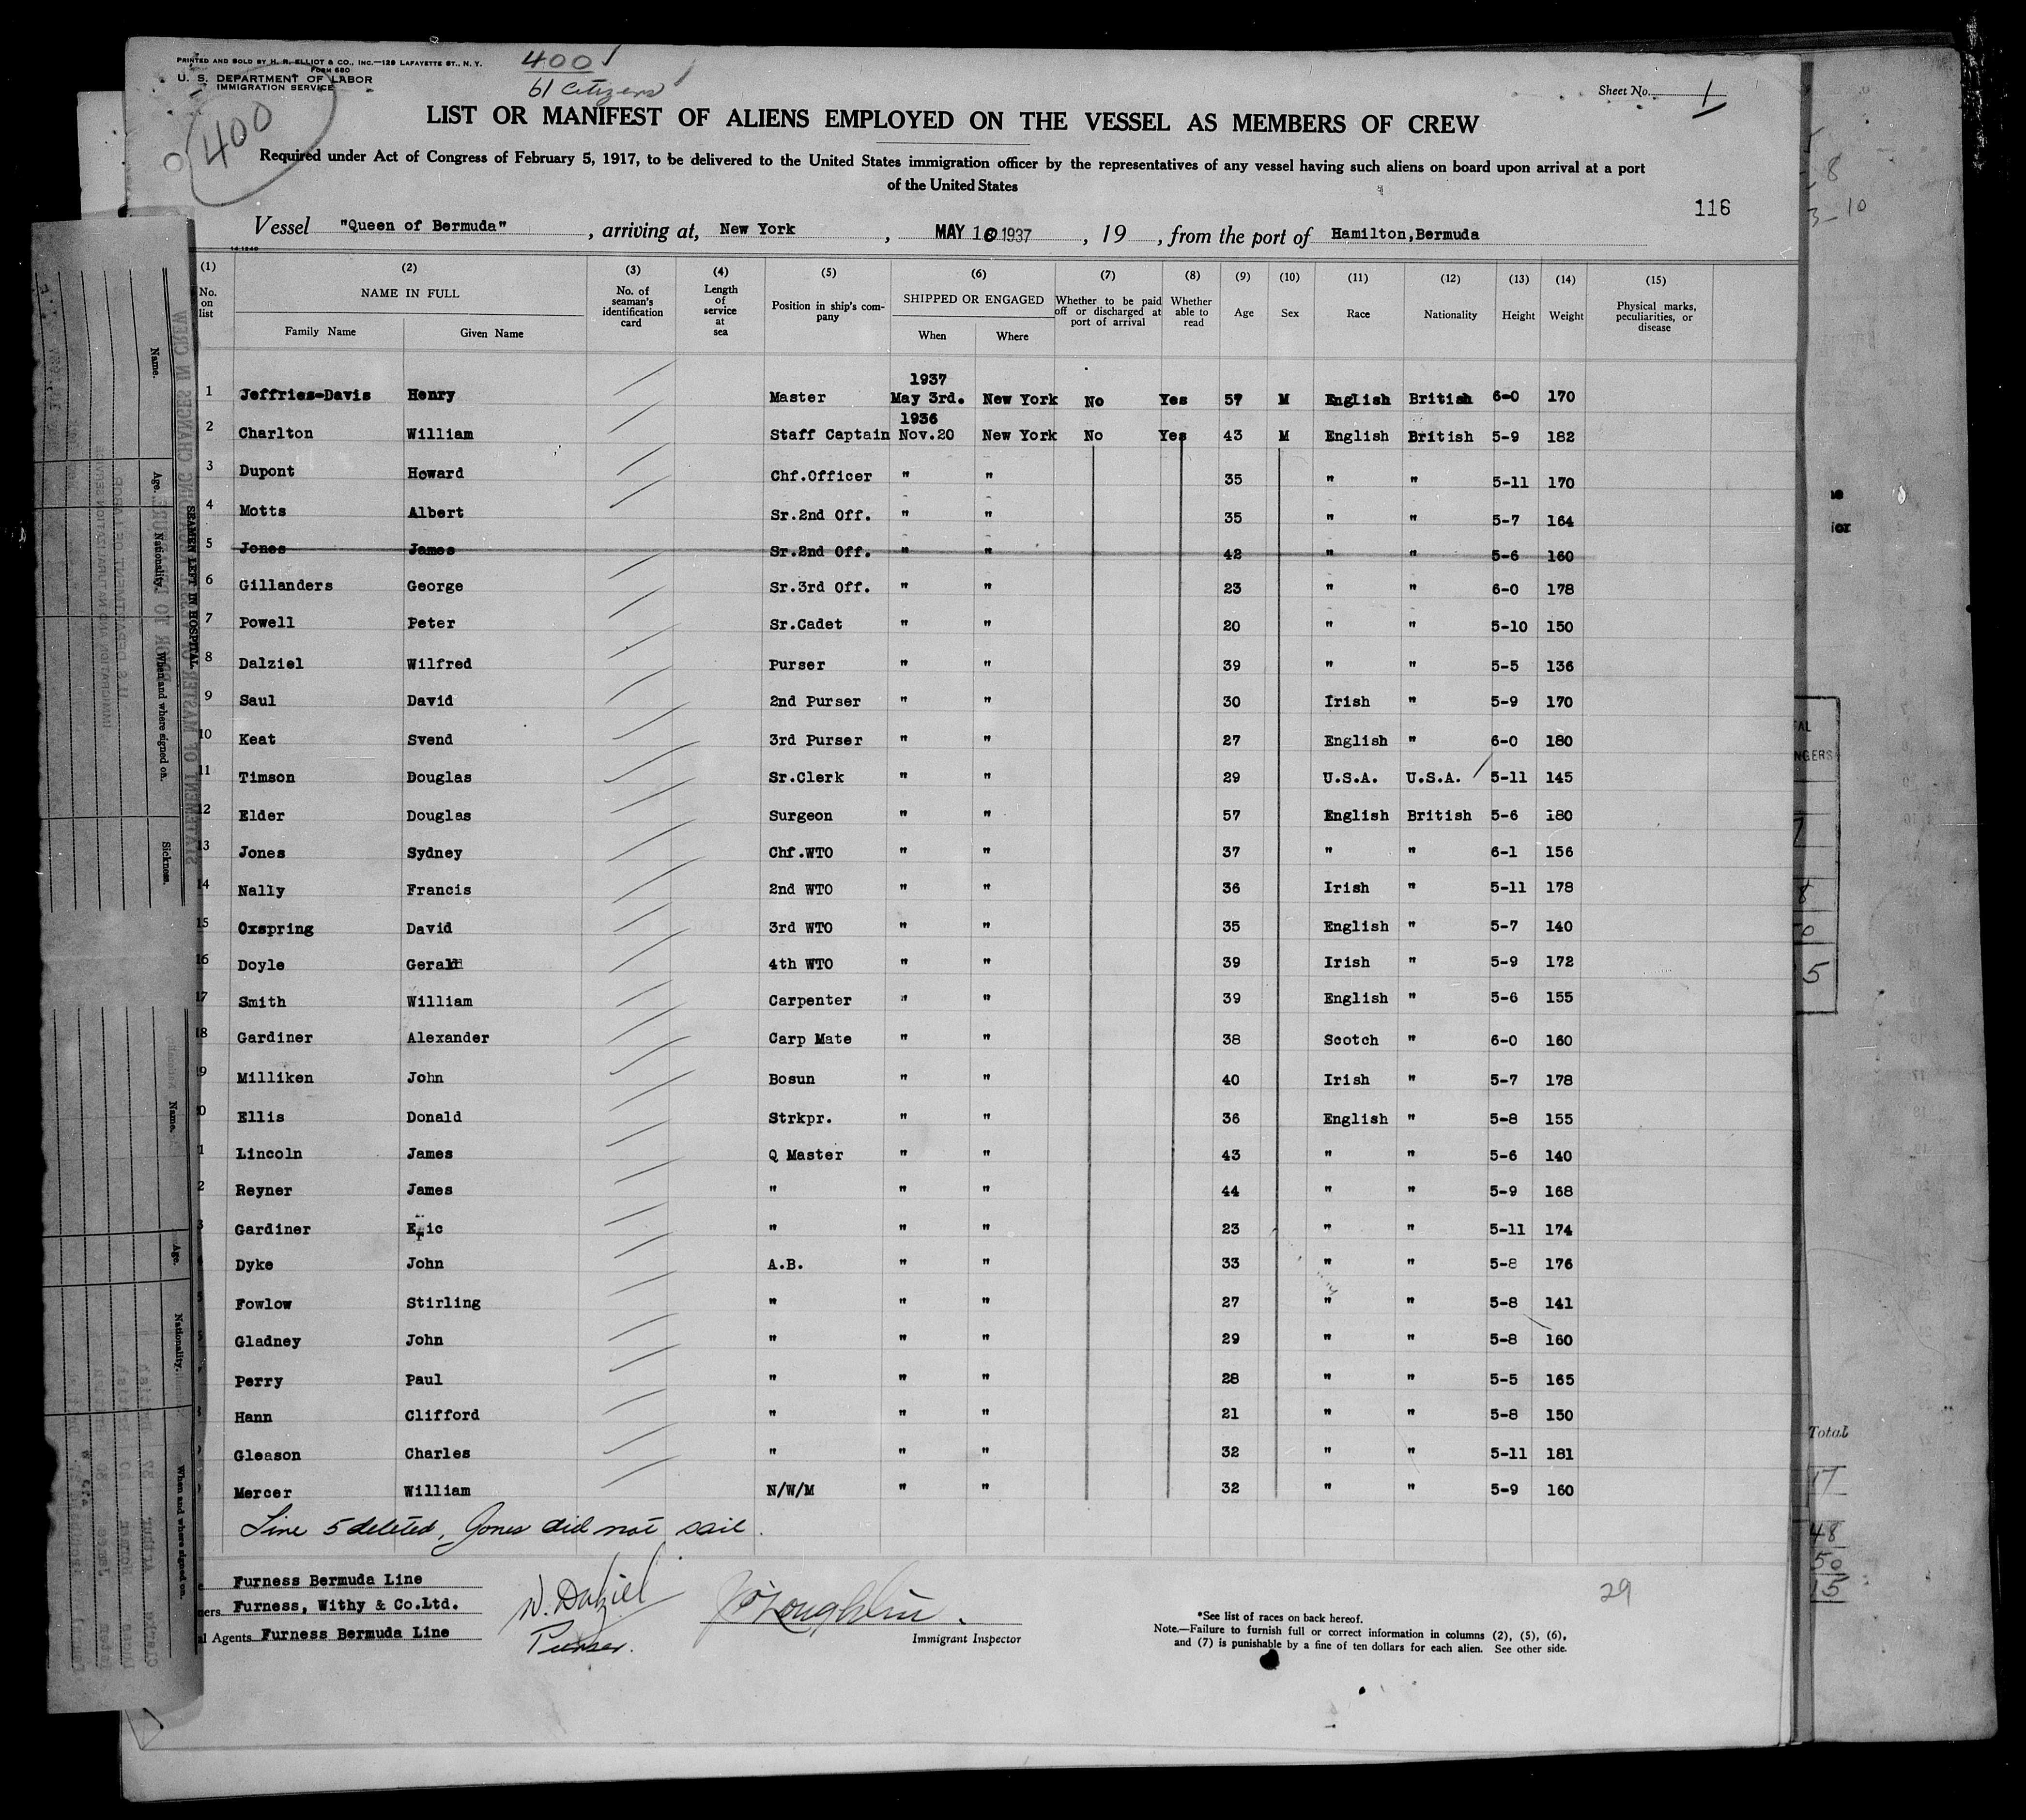 PRINTED AND SOLD BY H. R. ELLIOT & CO., INC.—129 LAFAYETTE ST., N. Y.
FORM 680
U. S. DEPARTMENT OF LABOR
IMMIGRATION SERVICE
400
61 Citizens
400
Sheet No. 1
LIST OR MANIFEST OF ALIENS EMPLOYED ON THE VESSEL AS MEMBERS OF CREW
Required under Act of Congress of February 5, 1917, to be delivered to the United States immigration officer by the representatives of any vessel having such aliens on board upon arrival at a port
of the United States
116
Vessel "Queen of Bermuda", arriving at, New York, MAY 10 1937, 19 , from the port of Hamilton,Bermuda
(1) (2) (3) (4) (5) (6) (7) (8) (9) (10) (11) (12) (13) (14) (15)
No. on list NAME IN FULL Family Name Given Name No. of seaman's identification card Length of service at sea Position in ship's company SHIPPED OR ENGAGED When Where Whether to be paid off or discharged at port of arrival Whether able to read Age Sex Race Nationality Height Weight Physical marks, peculiarities, or disease
1937
1 Jeffries-Davis Henry Master May 3rd. New York No Yes 57 M English British 6-0 170
1936
2 Charlton William Staff Captain Nov.20 New York No Yes 43 M English British 5-9 182
3 Dupont Howard Chf.Officer " " 35 " " 5-11 170
4 Motts Albert Sr.2nd Off. " " 35 " " 5-7 164
5 Jones James Sr.2nd Off. " " 42 " " 5-6 160
6 Gillanders George Sr.3rd Off. " " 23 " " 6-0 178
7 Powell Peter Sr.Cadet " " 20 " " 5-10 150
8 Dalziel Wilfred Purser " " 39 " " 5-5 136
9 Saul David 2nd Purser " " 30 Irish " 5-9 170
10 Keat Svend 3rd Purser " " 27 English " 6-0 180
11 Timson Douglas Sr.Clerk " " 29 U.S.A. U.S.A. 5-11 145
12 Elder Douglas Surgeon " " 57 English British 5-6 180
13 Jones Sydney Chf.WTO " " 37 " " 6-1 156
14 Nally Francis 2nd WTO " " 36 Irish " 5-11 178
15 Oxspring David 3rd WTO " " 35 English " 5-7 140
16 Doyle Gerald 4th WTO " " 39 Irish " 5-9 172
17 Smith William Carpenter " " 39 English " 5-6 155
18 Gardiner Alexander Carp Mate " " 38 Scotch " 6-0 160
9 Milliken John Bosun " " 40 Irish " 5-7 178
0 Ellis Donald Strkpr. " " 36 English " 5-8 155
1 Lincoln James Q Master " " 43 " " 5-6 140
2 Reyner James " " " 44 " " 5-9 168
3 Gardiner Eric " " " 23 " " 5-11 174
Dyke John A.B. " " 33 " " 5-8 176
Fowlow Stirling " " " 27 " " 5-8 141
Gladney John " " " 29 " " 5-8 160
Perry Paul " " " 28 " " 5-5 165
Hann Clifford " " " 21 " " 5-8 150
Gleason Charles " " " 32 " " 5-11 181
Mercer William N/W/M " " 32 " " 5-9 160
Line 5 deleted, Jones did not sail.
Furness Bermuda Line
ners Furness, Withy & Co.Ltd.
al Agents Furness Bermuda Line
W. Dalziel
Purser.
J O'Loughlin.
Immigrant Inspector
29
*See list of races on back hereof.
Note.—Failure to furnish full or correct information in columns (2), (5), (6),
and (7) is punishable by a fine of ten dollars for each alien. See other side.
SEAMEN LEFT IN HOSPITAL
Name. Age. Nationality. When and where signed on. Sickness.
Name. Age. Nationality. When and where signed on.
STATEMENT OF MASTER
Total
17
48
50
15